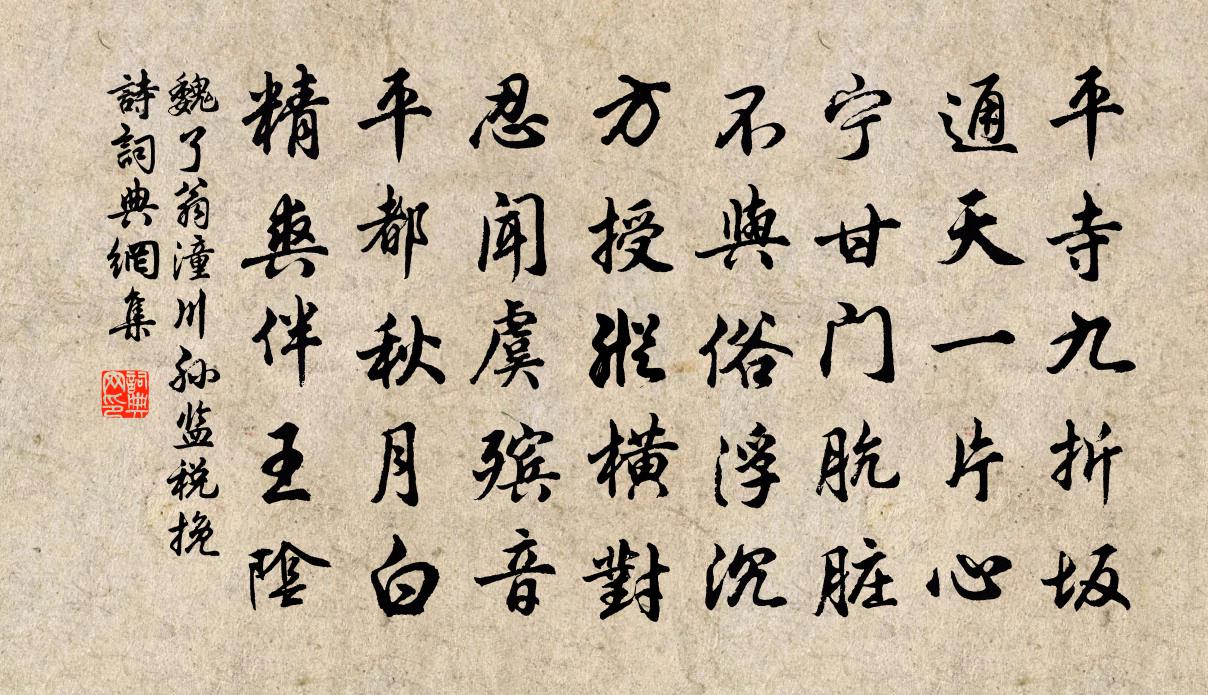 平寺九折坂
通天一片心
宁甘门肮脏
不與俗浮沉
方授縱橫對
忍闻虞殡音
平都秋月白
精爽伴王陰
魏了翁潼川孙监税挽
詩詞典網集
詞典网印